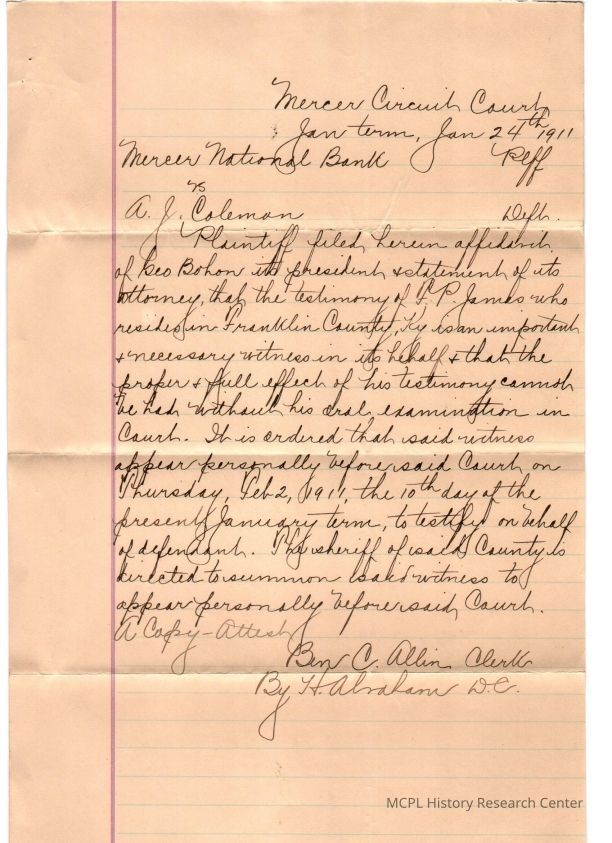 Mercer Circuit Court
Jan term, Jan 24th 1911
Mercer National Bank Plff
vs
A. J. Coleman Deft.
Plaintiff filed herein affidavit
of Geo Bohon its president & statement of its
attorney, that the testimony of F. P. James who
resides in Franklin County, Ky is an important
& necessary witness in its behalf & that the
proper & full effect of his testimony cannot
be had without his oral examination in
Court. It is ordered that said witness
appear personally before said Court on
Thursday, Feb 2, 1911, the 10th day of the
present January term, to testify on behalf
of defendant. The sheriff of said County is
directed to summon said witness to
appear personally before said Court.
A Copy - Attest
Ben C. Allin Clerk
By H. Abraham D.C.
MCPL History Research Center